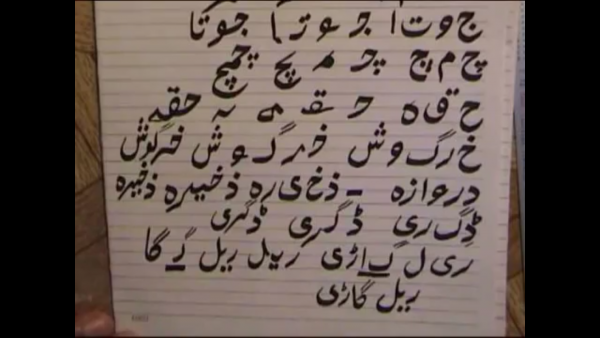 ج و ت ا جو تا جوتا
چ م چ چمچ چمچ
ح ق ہ حقہ حقہ
خ ر گ و ش خر گو ش خرگوش
دروازہ - ذ خ ی رہ ذخیرہ ذخیرہ
ڈ گ ری ڈگری ڈگری
ری ل گ اڑی ریل ریل گا
ریل گاڑی